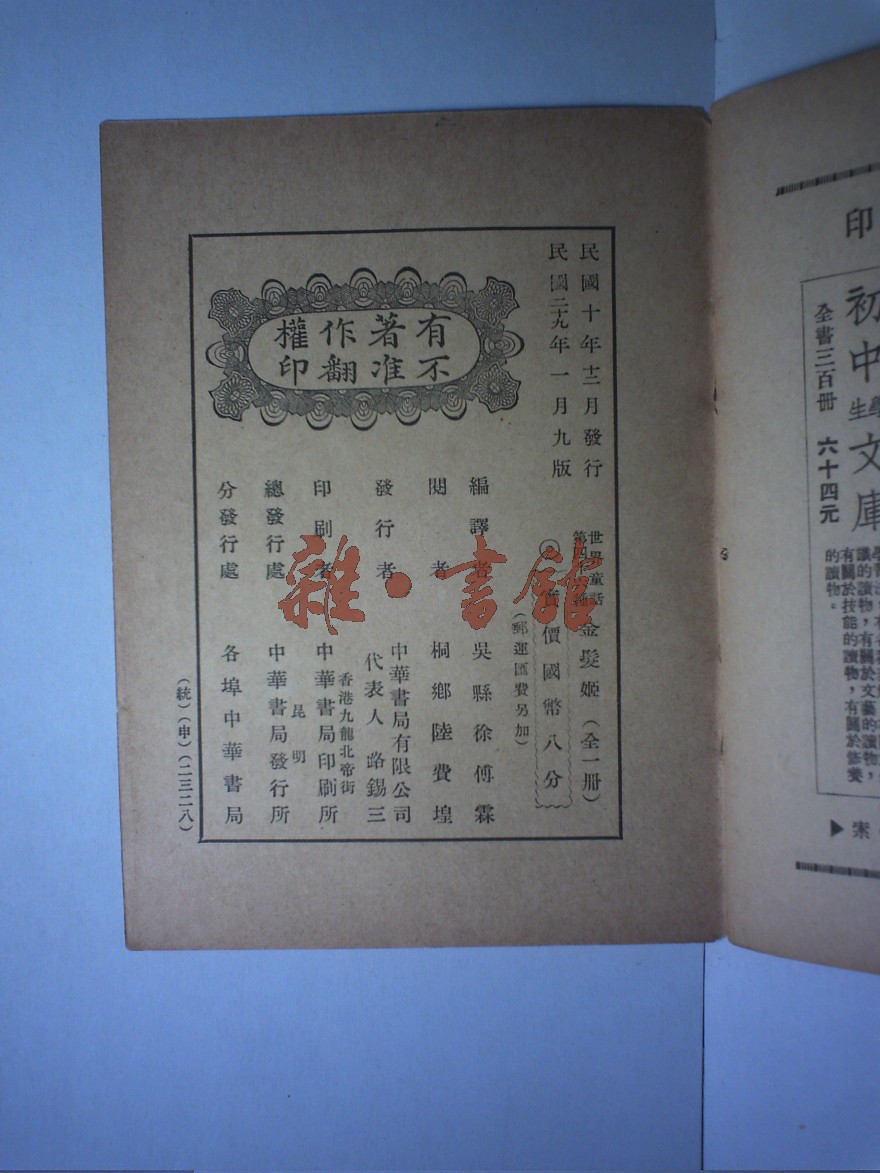 民國十年十二月發行
民國二十九年一月九版
世界童話
金髮姬(全一冊)
價國幣八分
(郵運匯費另加)
編譯者 吳縣徐傅霖
閱者 桐鄉陸費堭
發行者 中華書局有限公司
代表人 路錫三
印刷者 香港九龍北帝街
中華書局印刷所
總發行處 昆明
中華書局發行所
分發行處 各埠中華書局
有著作權
不准翻印
(統)(申)(二三二八)
雜·書館
印
初中學生文庫
全書三百冊 六十四元
讀的讀物,有關於文藝的讀物,
有關於技能的讀物,有關於修養
的讀物。